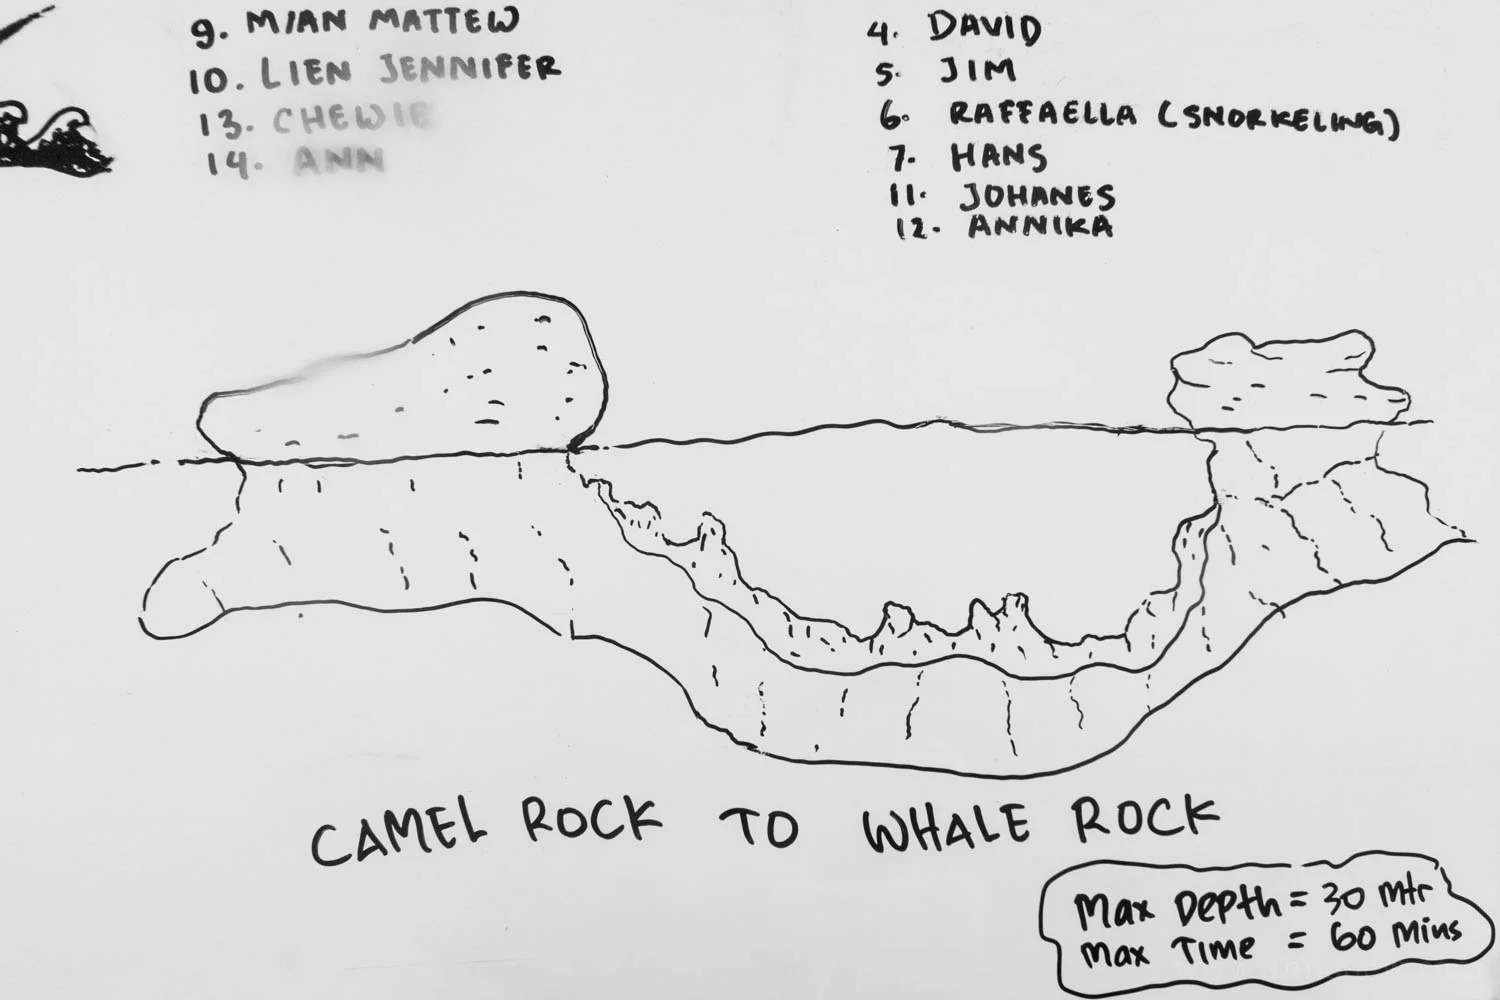 9. MIAN MATTEW
10. LIEN JENNIFER
13. CHEWIE
14. ANN
4. DAVID
5. JIM
6. RAFFAELLA (SNORKELING)
7. HANS
11. JOHANES
12. ANNIKA
CAMEL ROCK TO WHALE ROCK
Max Depth = 30 Mtr
Max Time = 60 Mins